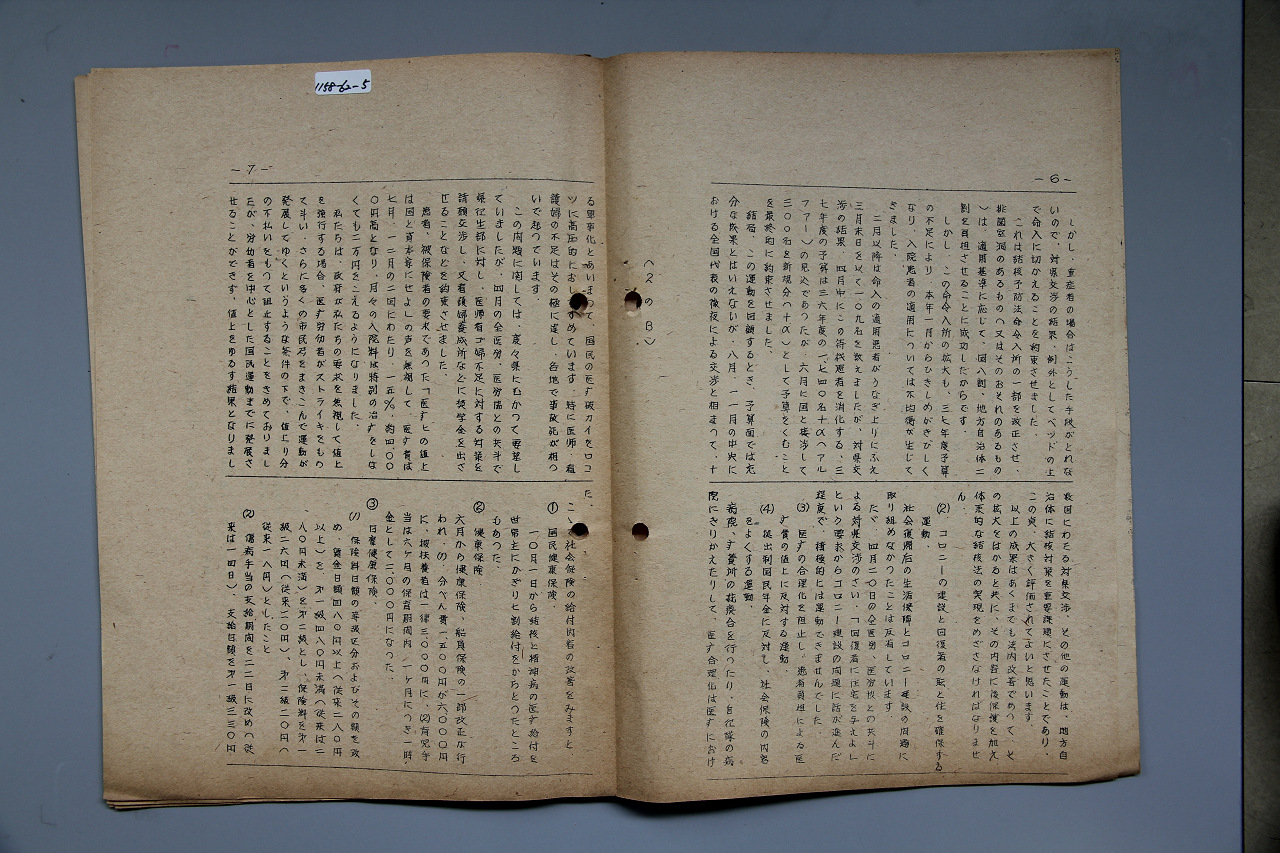 1158-62-5
－6－
しかし、重症者の場合はこうした手段がとれな
いので、対県交渉の結果、例外としてベッドの上
で命入に切かえることを約束させました。
これは結核予防法命令入所の一部を改正させ、
排菌空洞のあるもの(又はそのおそれのあるもの
)は、適用基準に応じて、国八割、地方自治体二
割を負担させることに成功したからです。
しかし、この命令入所の拡大も、三七年度予算
の不足により、本年一月からひきしめがきびしく
なり、入院患者の適用については不均衡が生じて
きました。
二月以降は命入の適用患者がうなぎ上りにふえ
三月末日を以て一〇九名を数えましたが、対県交
渉の結果、四月中にこの待機患者を消化する、三
七年度の予算は三六年度の一、七四〇名十α(アル
ファー)の見込であったが、六月に国と接渉して
三〇〇名を新規分(十α)として予算をくむこと
を最終的に約束させました。
結局、この運動を回顧するとき、予算面では充
分な成果とはいえないが、八月、一一月の中央に
おける全国代表の徹夜による交渉と相まって、十
(2のB)
数回にわたる対県交渉、その他の運動は、地方自
治体に結核対策を重要課題にさせたことであり、
この点、大きく評価されてよいと思います。
以上の成果はあくまでも法内改善であって、そ
の拡大をはかると共に、その内容に後保護を加え
体系的な結核法の実現をめざさなければなりませ
ん。
(2) コロニーの建設と回復者の職と住を確保する
運動。
社会復帰后の生活保障とコロニー建設の問題に
取り組めなかったことは反省しています。
たゞ、四月二〇日の全医労、医労協との共斗に
よる対県交渉のさい、「回復者に住宅を与えよ」
という要求からコロニー建設の問題に話が進んだ
程度で、積極的には運動できませんでした。
(3) 医すの合理化を阻止し、患者負担による医
す費の値上に反対する運動。
(4) 拠出制国民年金に反対し、社会保険の内容
をよくする運動。
病院、す養所の統廃合を行ったり、自衛隊の病
院にきりかえたりして、医す合理化は医すにおけ
－7－
る軍事化とあいまって、国民の医す破カイをロコ
ツに高圧的におしすゝめています。特に医師、看
護婦の不足はその極に達し、各地で事故死が相つ
いで起っています。
この問題に関しては、度々県にむかって要望し
ていましたが、四月の全医労、医労協との共斗で
県衛生部に対し、医師看ゴ婦不足に対する対策を
請願交渉し、又看護婦養成所などに奨学金を出さ
せることなどを約束させました。
患者、被保険者の要求であった「医すヒの値上
は国と資本家にせよ」の声を無視して、医す費は
七月、一二月の二回にわたり、一五%、約四〇〇
〇円高となり、月々の入院料は特別の治すをしな
くても二万円をこえるようになりました。
私たちは、政府が私たちの要求を無視して値上
を強行する場合、医す労働者がストライキをもっ
て斗い、さらに多くの市民をまきこんで運動が
発展してゆくというような条件の下で、値上り分
の不払いをもって阻止することをきめておりまし
たが、労働者を中心とした国民運動までに発展さ
せることができず、値上をゆるす結果となりまし
た。
こゝで社会保険の給付内容の改善をみますと、
① 国民健康保険。
一〇月一日から結核と精神病の医す給付を
世帯主にかぎり七割給付をかちとったところ
もあった。
② 健康保険
六月から健康保険、船員保険の一部改正が行
われ、(1) 分べん費一、五〇〇円が六〇〇〇円
に、被扶養者は一律三〇〇〇円に、(2) 育児手
当は六ヶ月の保育期間内／一ヶ月につき一時
金として二〇〇〇円になった。
③ 日雇健康保険。
(1) 保険料日額の等級区分およびその額を改
め、賃金日額四八〇円以上(従来二八〇円
以上)を第一級四八〇円未満(従来は二
八〇円未満)を第二級とし、保険料を第一
級二六円(従来二〇円)、第二級二〇円(
従来一八円)としたこと
(2) 傷病手当の支給期間を二二日に改め(従
来は一四日)、支給日額を第一級三三〇円